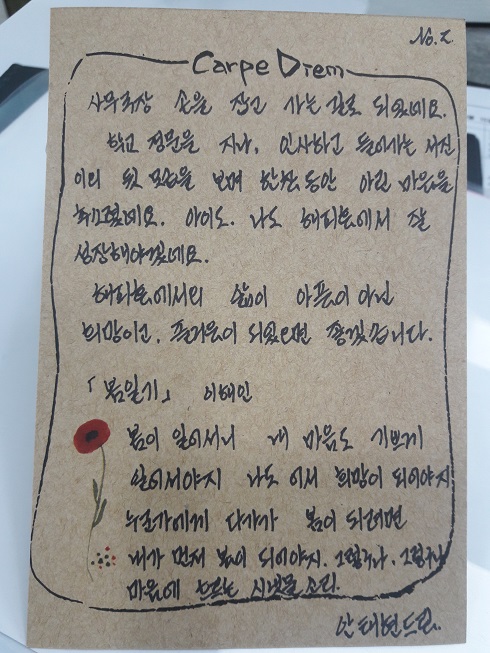 No. 2
Carpe Diem
사무국장 손을 잡고 사는 길로 되었네요.
학교 정문을 지나, 인사하고 들어가는 서진
이의 뒷 모습을 보며 한참 동안 아린 마음을
아이도. 나도 에서 잘
성장해야겠네요.
에서의 삶이 아픔이 아닌
희망이고, 즐거움이 되었으면 좋겠습니다.
「봄일기」 이해인
봄이 일어서니 내 마음도 기쁘게
일어서야지 나도 어서 희망이 되어야지
누군가에게 다가가 봄이 되려면
내가 먼저 봄이 되어야지. 그렇구나. 그렇구나
마음에 흐르는 시냇물 소리.
안태현 드림.